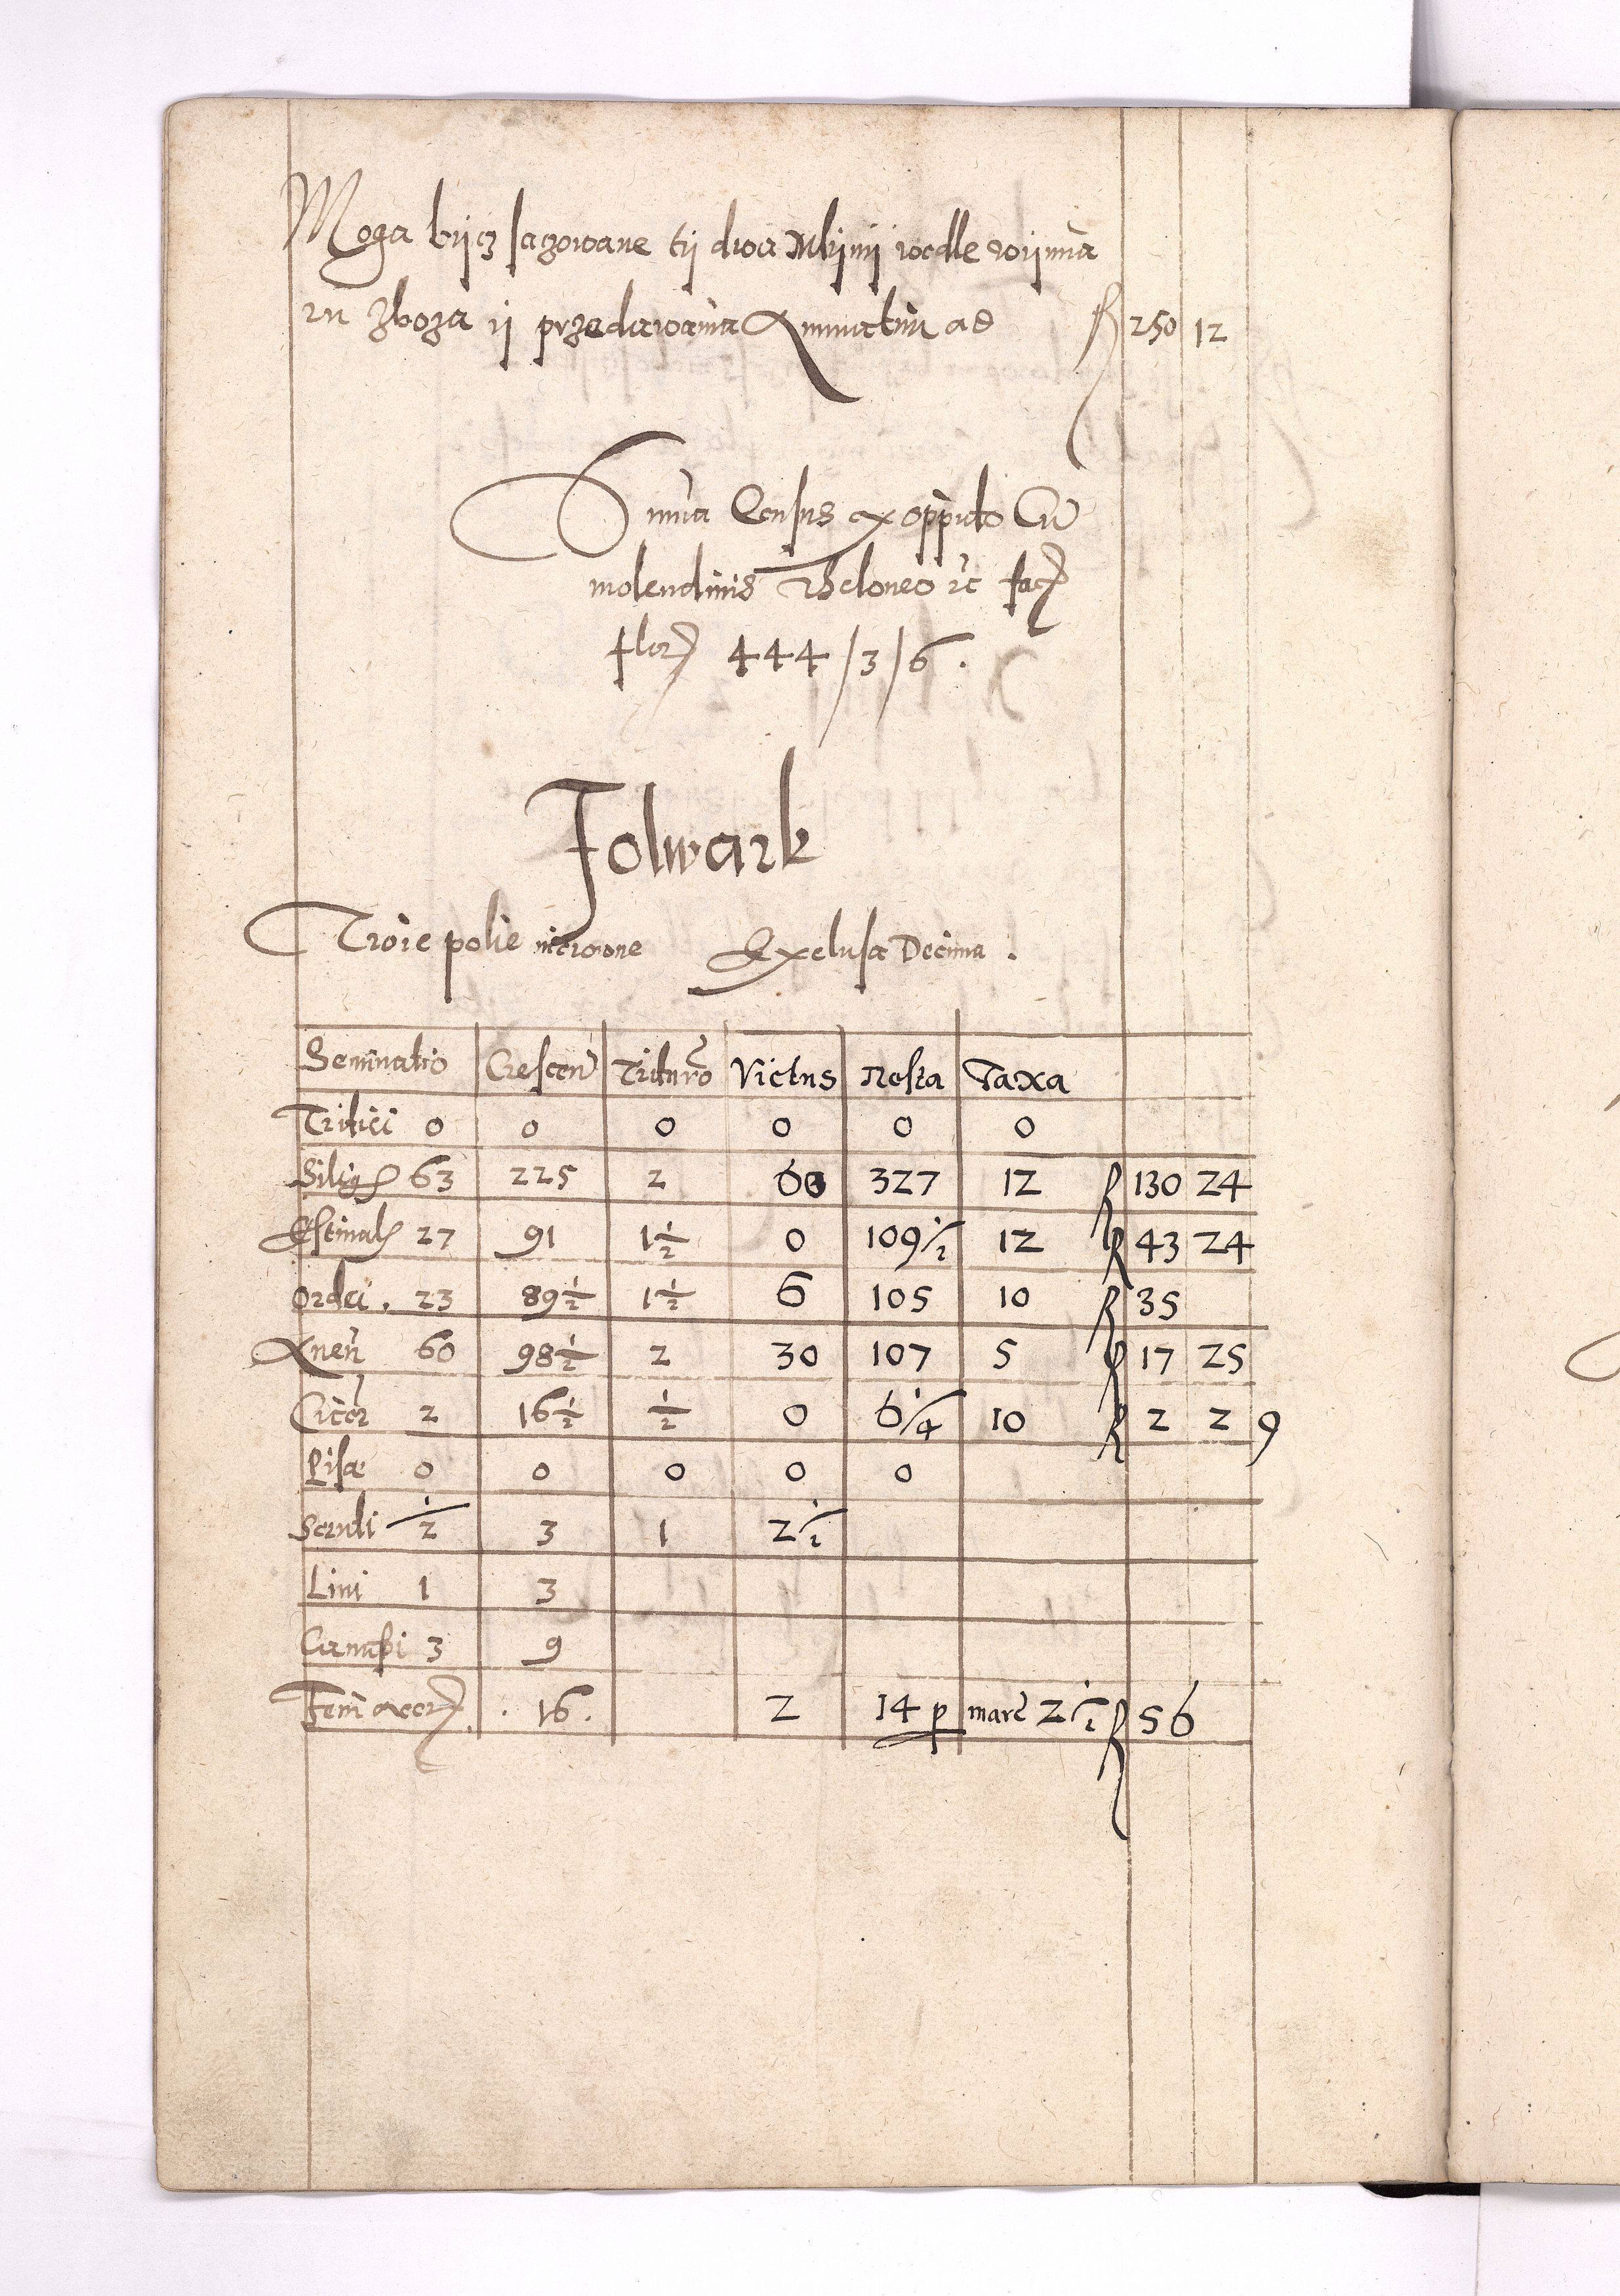 Moga bijcz sazowane tij dwa Mlijnij wedle wijmia
ru zboza ij przedawania Annuatim ad f 250 12
Summa Census ex oppido Cum
molendinis Theloneo etc facit
flor 444/3/6.
Folwark
Troie polie nierowne Exclusa Decima.
Seminatio Crescen Triturao Victus Resta Taxa
Tritici 0 0 0 0 0 0
Silig 63 225 2 60 327 12 f 130 24
Estinal 27 91 1½ 0 109½ 12 f 43 24
Ordei . 23 89½ 1½ 6 105 10 f 35
Auen 60 98½ 2 30 107 5 f 17 25
Cicer 2 16½ ½ 0 6¼ 10 f 2 2 9
Pisae 0 0 0 0 0
½ 3 1 2½
Lini 1 3
Canapi 3 9
Feni acer . 16. 2 14 p marc 2½ f 56